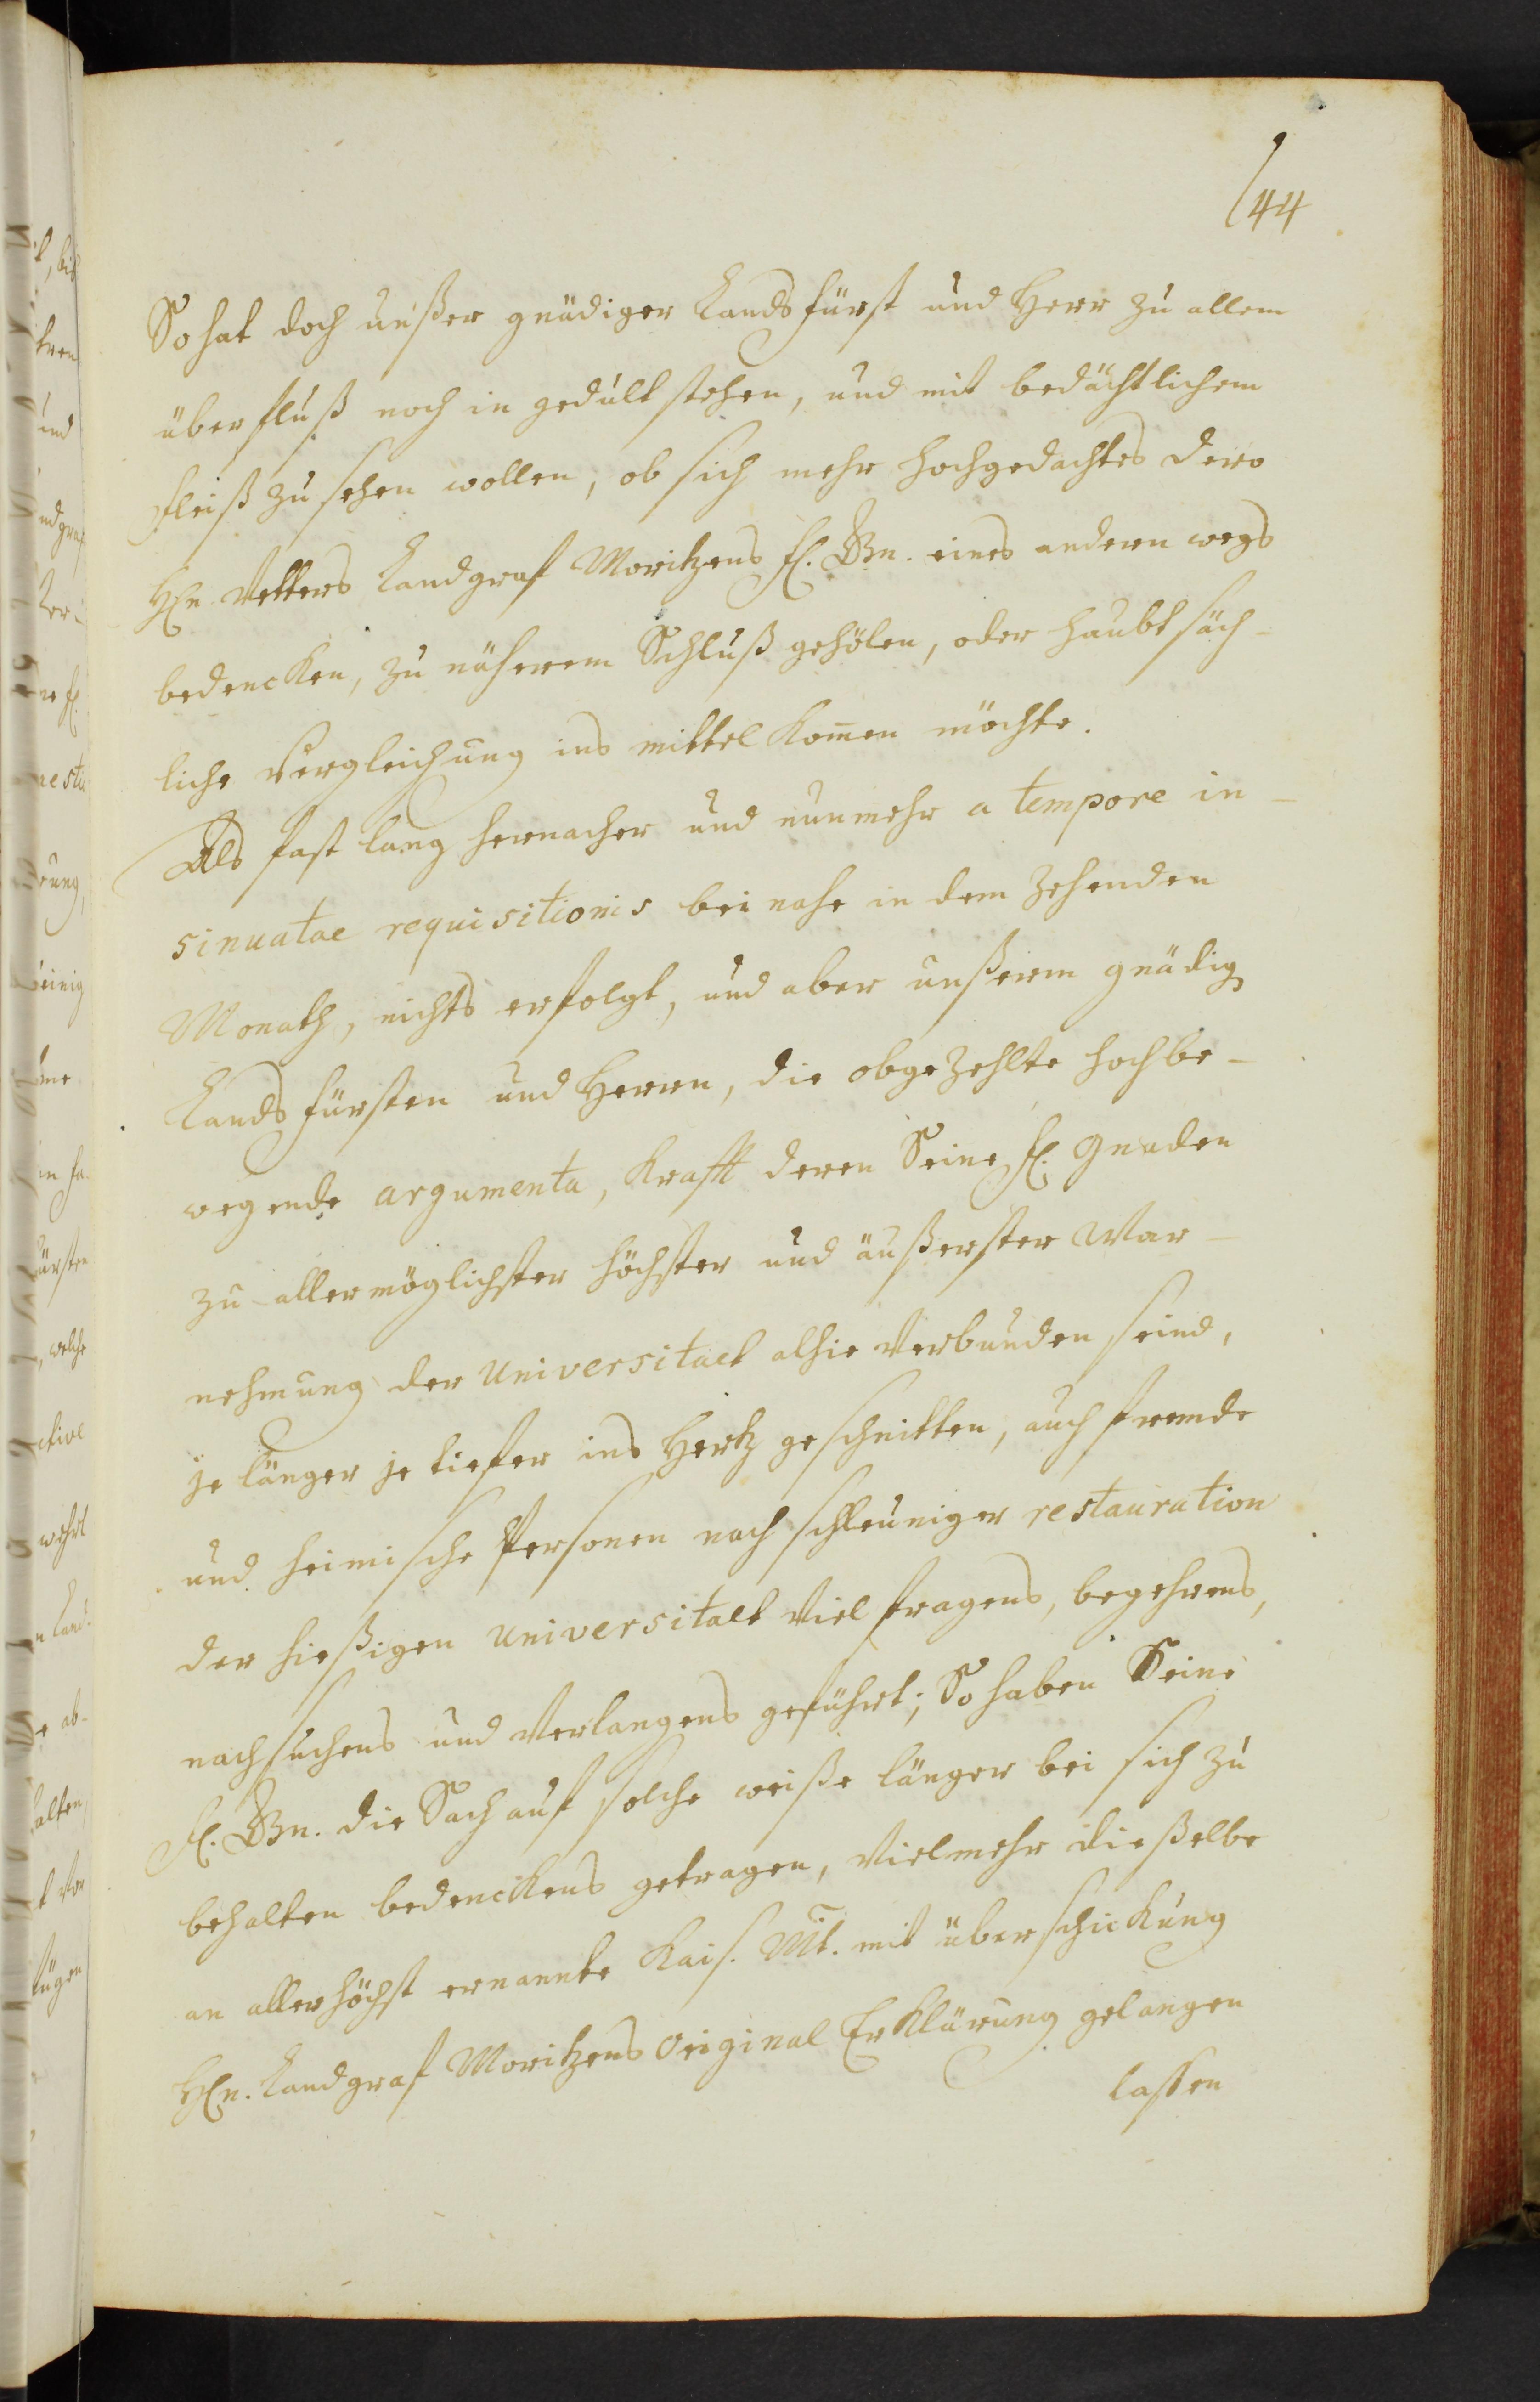 44
So hat doch unßer gnädiger Landsfürst und Herr zu allem
überfluß noch in gedult stehen, und mit bedächtlichem
fleiß zu sehen wollen, ob sich mehr hochgedachtes dero
Hn. Vetters Landgraf Moritzens fl. Gn. eines andern wegs
bedencken, zu näherem Schluß gehölen, oder haubtsäch-
liche Vergleichung ins mittel kom̃en möchte.
Als fast lang hernacher und nunmehr a tempore in-
sinuatae requisitionis bei nahe in dem zehenden
Monath, nichts erfolgt, und aber unßerm gnädig
Lands fürsten und Herrn, die obgezehlte hochbe-
wegende argumenta, Krafft deren Seine fl. Gnaden
zu allermöglichster höchster und äußerster War-
nehmung der Universitaet alhie Verbunden seind,
je länger je tiefer ins Hertz geschnitten, auch fremde
und heimische Personen nach schleuniger restauration
der hießigen Universitaet Viel fragens, begehrens,
nachsuchens und Verlangens geführt; So haben Seine
fl. Gn. die Sach auf solche weiße länger bei sich zu
behalten bedenckens getragen, Vielmehr dieselbe
an allerhöchst ernannte Kais. Mt. mit überschickung
Hn. Landgraf Moritzens Original Erklärung gelangen
lassen